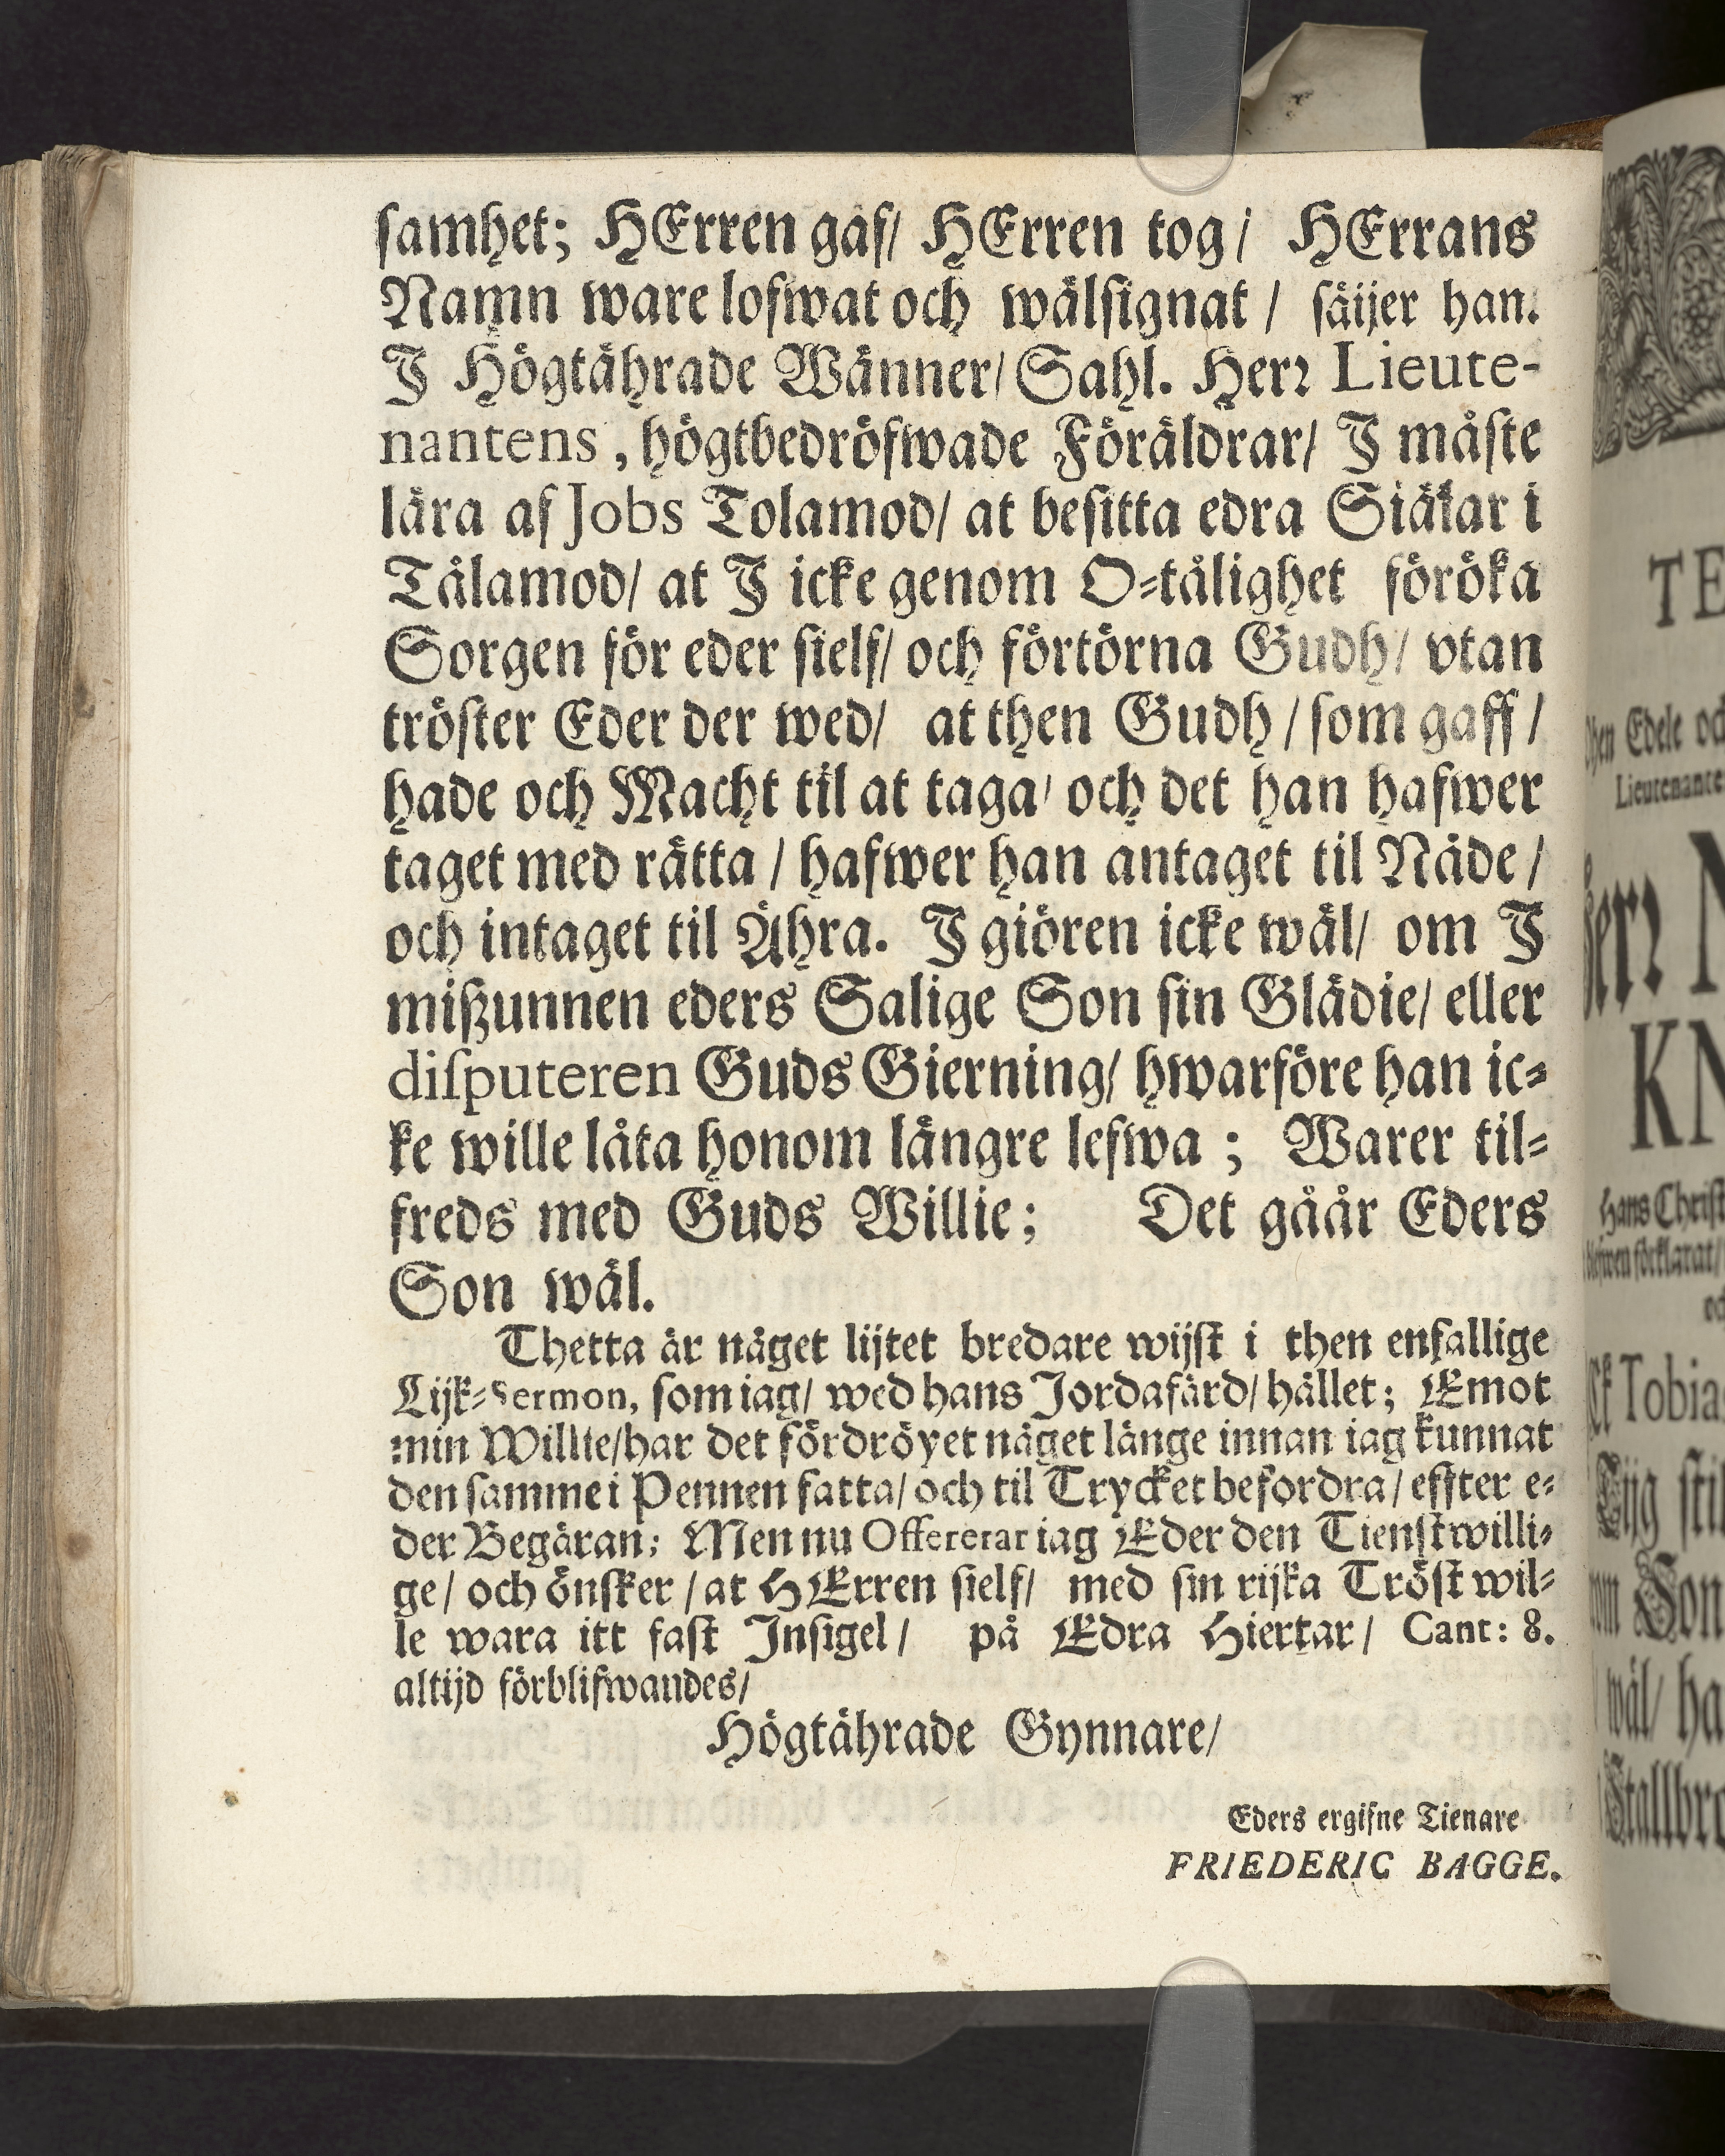 ſamhet; HErren gaf/ HErren tog/ HErrans
Namn ware lofwat och wälſignat / ſäijer han.
J Högtährade Wänner/ Sahl. Herꝛ Lieute-
nantens, högtbedröfwade Föräldrar/ J måſte
lära af Jobs Tolamod/ at beſitta edra Siäkar i
Tålamod/ at J icke genom O-tålighet föröka
Sorgen för eder ſielf/ och förtörna Gudh/ vtan
tröſter Eder der wed/ at then Gudh / ſom gaff /
hade och Macht til at taga/ och det han hafwer
taget med rätta / hafwer han antaget til Nåde /
och intaget til Ähra. J giören icke wäl/ om J
mißunnen eders Salige Son ſin Glädie/ eller
diſputeren Guds Gierning/ hwarföre han ic-
ke wille låta honom längre lefwa ; Warer til-
freds med Guds Willie; Det gåår Eders
Son wäl.
Thetta är någet lijtet bredare wijſt i then enfallige
Lijk-Sermon, ſom iag/ wed hans Jordafärd/ hållet; Emot
min Willie/har det fördröyet någet länge innan iag kunnat
den ſamme i Pennen fatta/ och til Trycket befordra/ effter e-
der Begäran; Men nu Offererar iag Eder den Tienſtwilli-
ge/ och önſker / at HErren ſielf/ med ſin rijka Tröſt wil-
le wara itt faſt Inſigel / på Edra Hiertar/ Cant: 8.
altijd förblifwandes/
Högtährade Gynnare/
Eders ergifne Tienare
FRIEDERIC BAGGE.
TE
Edele
Lieutenante
KN
Hans Chriſt
Tobia
wäl/ ha